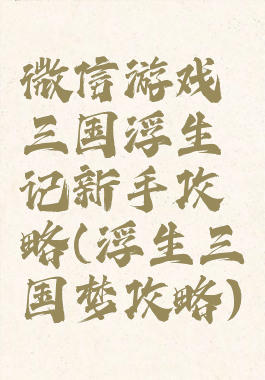 微信游戏
三国浮生
记新手攻
略(浮生三
国梦攻略)